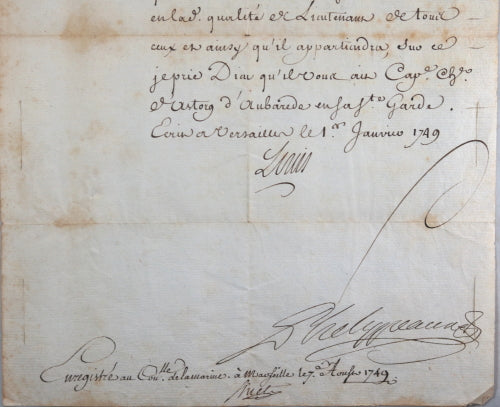 en lad. qualité de Lieutenant de tous
ceux et ainsy qu'il appartiendra, Sur ce
je prie Dieu qu'il vous ait Cap.e Ch.er
d'Astorg d'Aubarede en sa S.te Garde.
Ecrit a Versailles le 1.er Janvier 1749
Louis
Phelypeaux
Enregistré au Con.lle de la marine à Marseille le 7. 1749